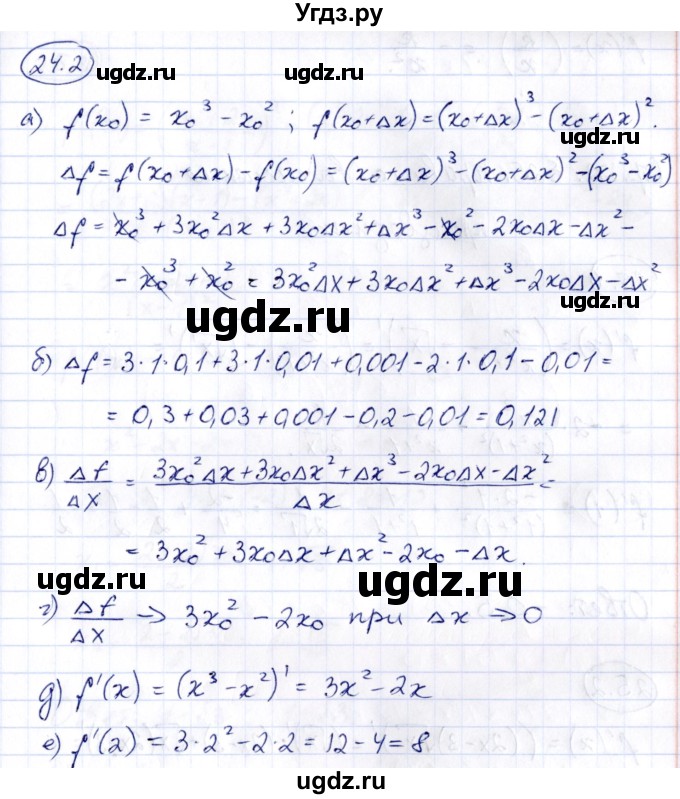 Угдз.ру
24.2
ugdz.ru
ugdz.ru
а) f(x₀) = x₀³ - x₀² ; f(x₀+Δx)=(x₀+Δx)³-(x₀+Δx)².
ugdz.ru
Δf=f(x₀+Δx)-f(x₀)=(x₀+Δx)³-(x₀+Δx)²-(x₀³-x₀²)
Δf=x₀³+3x₀²Δx+3x₀Δx²+Δx³-x₀²-2x₀Δx-Δx²-
-x₀³+x₀²=3x₀²Δx+3x₀Δx²+Δx³-2x₀Δx-Δx²
ugdz.ru
ugdz.ru
б) Δf=3·1·0,1+3·1·0,01+0,001-2·1·0,1-0,01=
=0,3+0,03+0,001-0,2-0,01=0,121
в) Δf/Δx = (3x₀²Δx+3x₀Δx²+Δx³-2x₀Δx-Δx²)/Δx =
=3x₀²+3x₀Δx+Δx²-2x₀-Δx.
ugdz.ru
ugdz.ru
г) Δf/Δx → 3x₀²-2x₀ при Δx→0
ugdz.ru
д) f'(x)=(x³-x²)'=3x²-2x
е) f'(2)=3·2²-2·2=12-4=8
ugdz.ru
ugdz.ru
ugdz.ru